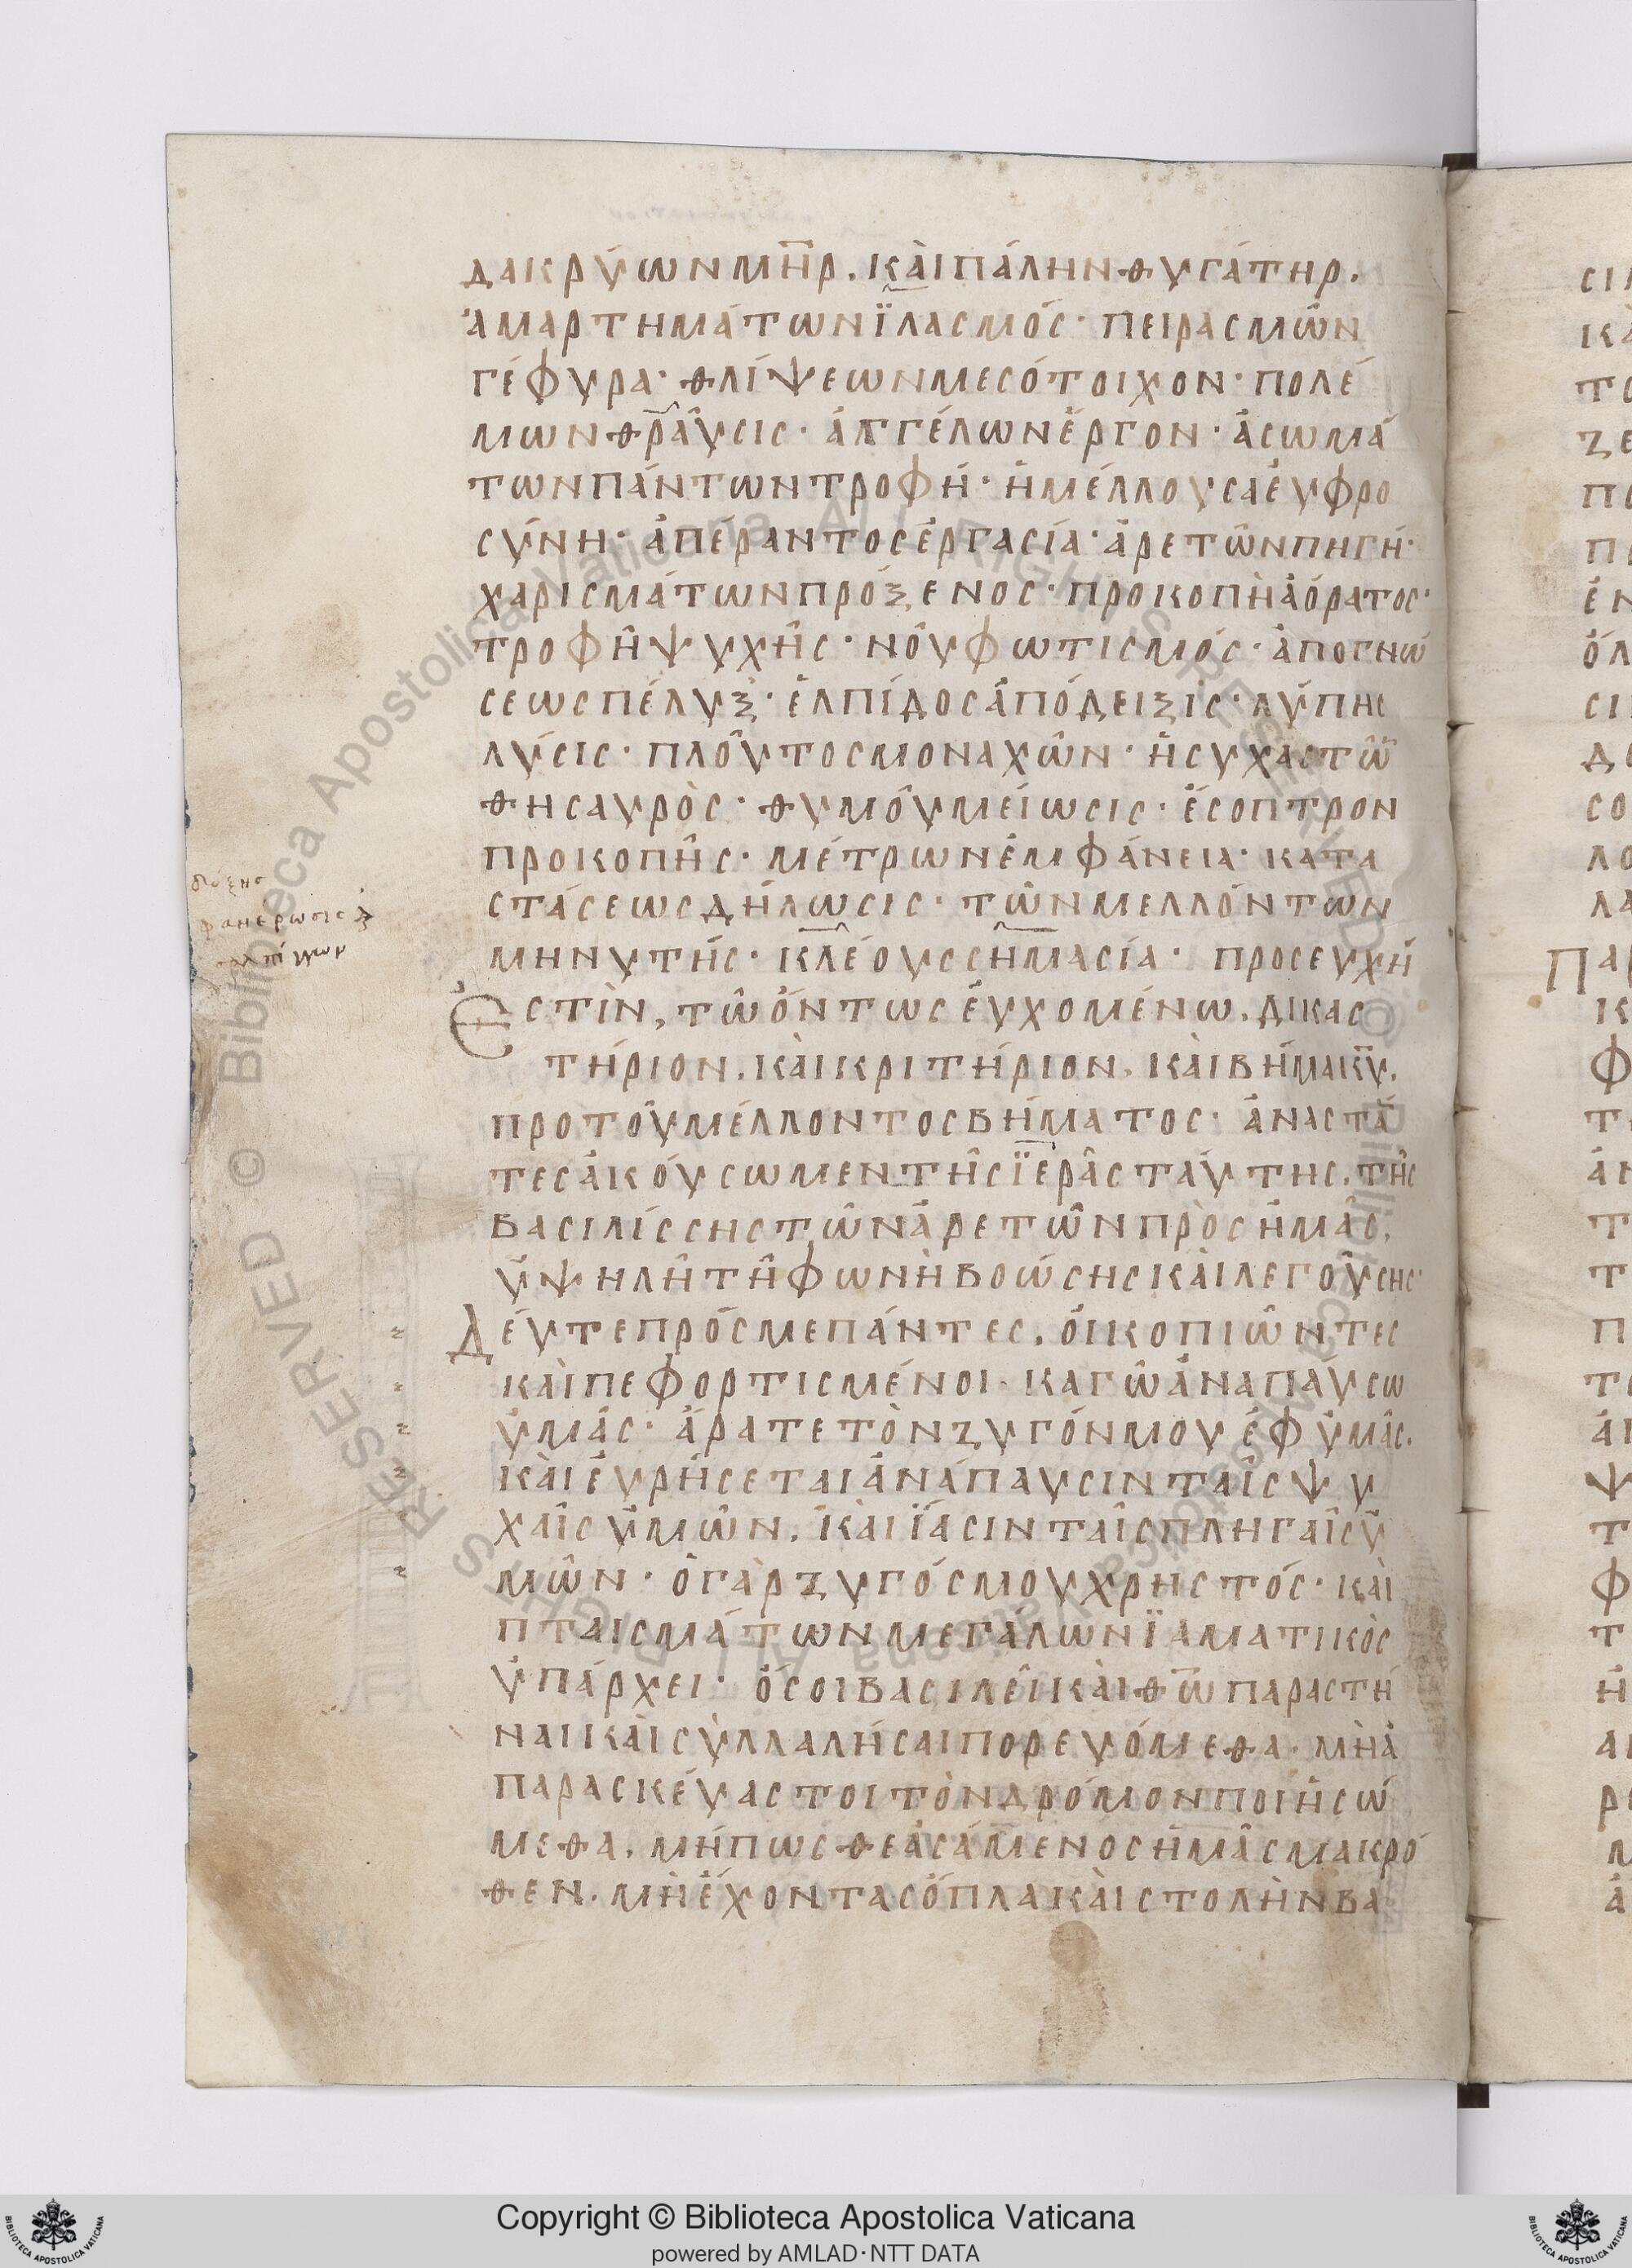 δακρύων μη̄ρ. καὶ πάλην θυγάτηρ.
ἁμαρτημάτων ἱ̈λασμός· πειρασμῶν
γέφυρα· θλίψεων μεσότοιχον· πολέ
μων θραῦσις· ἀγγέλων ἔργον· ἀσωμά
των πάντων τροφή· ἡ μέλλουσα ἐυφρο
σύνη· ἀπέραντος ἐργασία· ἀρετῶν πηγή·
χαρισμάτων πρόξενος· προκοπὴ ἀόρατος·
τροφῆ ψυχῆς· νοῦ φωτισμός· ἀπογνώ
σεως πέλυξ· ἐλπίδος ἀπόδειξις· λύπης
λύσις· πλοῦτος μοναχῶν· ἡσυχαστῶ̄
θησαυρὸς· θυμοῦ μείωσις· ἔσοπτρον
προκοπῆς· μέτρων ἐμφάνεια· κατα
στάσεως δήλωσις· τῶν μελλόντων
μηνυτής· κλέους σημασία· προσευχή
Ἐστὶν, τῶ ὄντως ἐυχομένω. δικας
τήριον. καὶ κριτήριον. καὶ βήμα κ̄ῡ.
προ τοῦ μέλλοντος βήματος· ἀναστά
τες ἀκούσωμεν τῆς ἱ̈ερᾶς ταύτης. τῆς
βασιλίσσης τῶν ἀρετῶν πρὸς ἡμᾶς,
ὑ̈ψηλῆ τῆ φωνὴ βοώσης καὶ λεγούσης·
Δέυτε πρός με πάντες. ὁι κοπιῶντες
καὶ πεφορτισμένοι· καγῶ ἀναπαύσω
ὑμᾶς· ἄρατε τὸν ζυγόν μου ἐφ ὑμᾶς.
καὶ ἑυρήσεται ἀνάπαυσιν ταῖς ψυ
χαῖς ὑμῶν. καὶ ἵ̈ασιν ταῖς πληγαῖς ὑ̈
μῶν· ὁ γὰρ ζυγός μου χρηστός· καὶ
πταισμάτων μεγάλων ἰ̈αματικὸς
ὑπάρχει· ὅσοι βασιλεῖ καὶ θ̄ω̄ παραστή
ναι καὶ συλλαλήσαι πορευόμεθα· μὴ ἀ
παρασκέυαστοι τὸν δρόμον ποιησώ
μεθα. μήπως θεασάμενος ἡμᾶς μακρό
θεν. μὴ ἔχοντας ὅπλα καὶ στολὴν βα
δόξης
φανέρωσις